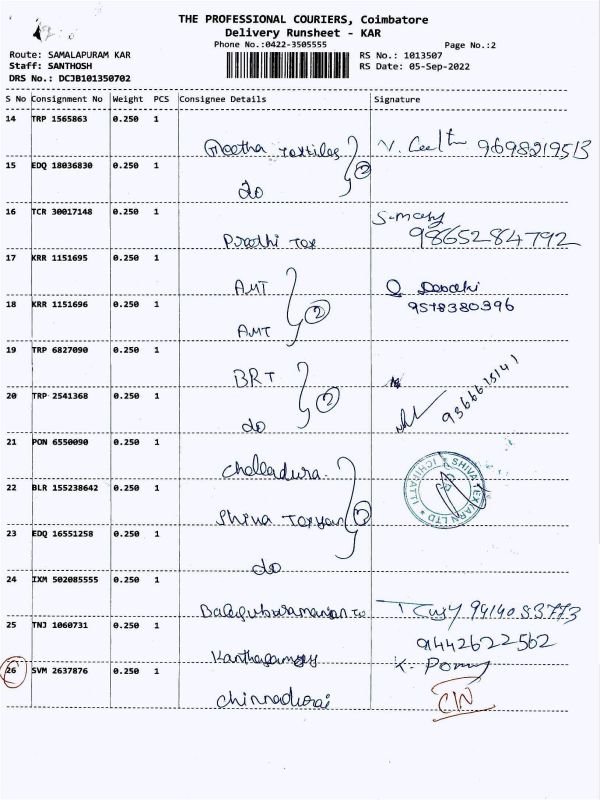 THE PROFESSIONAL COURIERS, Coimbatore
Delivery Runsheet - KAR
Phone No.:0422-3505555
Page No.:2
Route: SAMALAPURAM KAR
RS No.: 1013507
Staff: SANTHOSH
RS Date: 05-Sep-2022
DRS No.: DCJB101350702
S No Consignment No Weight PCS Consignee Details Signature
14 TRP 1565863 0.250 1
Geetha Textiles 9698219513
15 EDQ 18036830 0.250 1
do
16 TCR 30017148 0.250 1
Preethi Tex 9865284792
17 KRR 1151695 0.250 1
AMT
9578380396
18 KRR 1151696 0.250 1
AMT
19 TRP 6827090 0.250 1
BRT
20 TRP 2541368 0.250 1
do
21 PON 6550090 0.250 1
Chelladura
22 BLR 155238642 0.250 1
Shiva Texyarn
23 EDQ 16551258 0.250 1
do
24 IXM 502085555 0.250 1
25 TNJ 1060731 0.250 1
9442622562
26 SVM 2637876 0.250 1
Chinnadurai